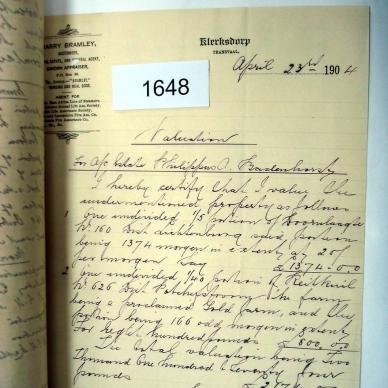 HARRY BRAMLEY,
AUCTIONEER,
SWORN APPRAISER
AGENT FOR
Klerksdorp
TRANSVAAL.
April 23rd 1904
1648
Valuation
For a/c Estate Philippus A. Badenhorst
I hereby certify that I value the
undermentioned property as follows
1 one undivided 1/5 portion of
No 160 Dist. Lichtenburg said portion
being 1374 morgen in extent at 20/
per morgen say £1374-0-0
2 one undivided portion of Rietkuil
No 626 Dist Potchefstroom the farm
being a proclaimed Gold farm, and the
portion being 166 odd morgen in extent
for eight hundred pounds £800.0.0
The total valuation being Two
Thousand One hundred & Seventy four
pounds